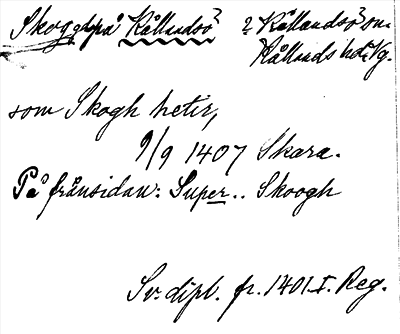 Skog på Kållandsö?
? Kållandsö om
Kållands hd. Vg.
som Skogh hetir,
9/9 1407 Skara.
På frånsidan: Super.. Skoogh
Sv. dipl. fr. 1401 I. Reg.